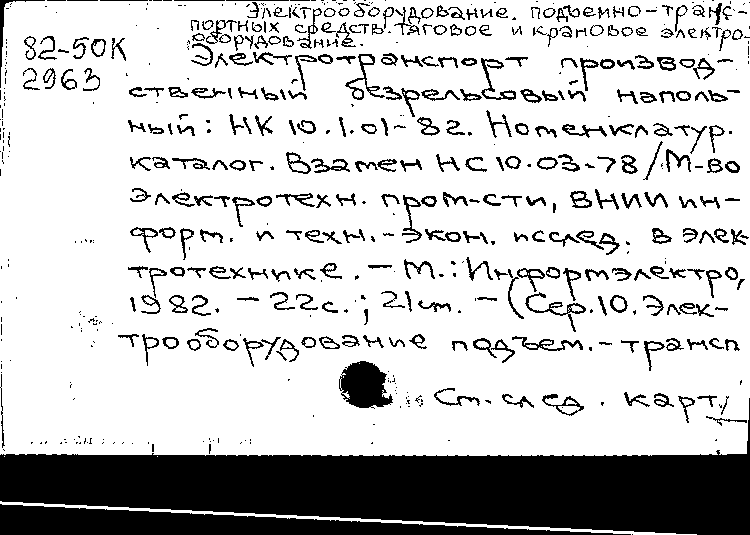 Электрооборудование. подъемно-транс-
портных средств. тяговое и крановое электро-
оборудование.
82-50К
2963
Электротранспорт производ-
ственный безрельсовый наполь-
ный: НК 10.1.01-82. Номенклатур.
каталог. Взамен НС 10.03-78/М-во
электротехн. пром-сти, ВНИИ ин-
форм. и техн.-экон. исслед. в элек
тротехнике. - М.: Информэлектро,
1982. - 22с.; 21см. - (Сер.10. Элек-
трооборудование подъем.-трансп
См. след. карт.